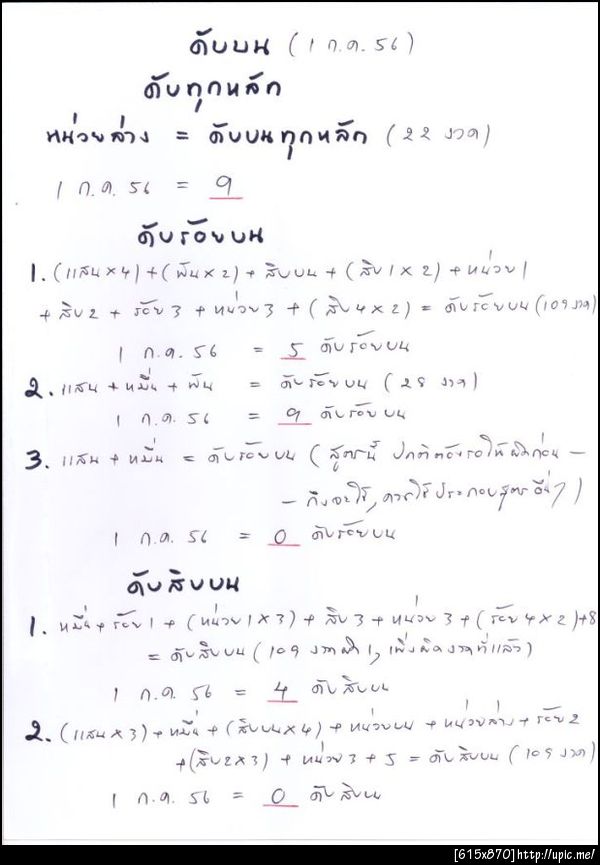 ดับบน (1 ก.ค. 56)
ดับทุกหลัก
หน่วยล่าง = ดับบนทุกหลัก (22 งวด)
1 ก.ค. 56 = 9
ดับร้อยบน
1. (แสน×4)+(พัน×2)+สิบบน+(สิบ1×2)+หน่วย1
+สิบ2+ร้อย3+หน่วย3+(สิบ4×2) = ดับร้อยบน (109 งวด)
1 ก.ค. 56 = 5 ดับร้อยบน
2. แสน+หมื่น+พัน = ดับร้อยบน (28 งวด)
1 ก.ค. 56 = 9 ดับร้อยบน
3. แสน+หมื่น = ดับร้อยบน (สูตรนี้ ปกติต้องรอให้ผิดก่อน -
- ถึงจะใช้, ควรใช้ประกอบสูตรอื่นๆ)
1 ก.ค. 56 = 0 ดับร้อยบน
ดับสิบบน
1. หมื่น+ร้อย1+(หน่วย1×3)+สิบ3+หน่วย3+(ร้อย4×2)+8
= ดับสิบบน (109 งวดผิด1, เพิ่งผิดงวดที่แล้ว)
1 ก.ค. 56 = 4 ดับสิบบน
2. (แสน×3)+หมื่น+(สิบบน×4)+หน่วยบน+หน่วยล่าง+ร้อย2
+(สิบ2×3)+หน่วย3+5 = ดับสิบบน (109 งวด)
1 ก.ค. 56 = 0 ดับสิบบน
[615x870]http://upic.me/